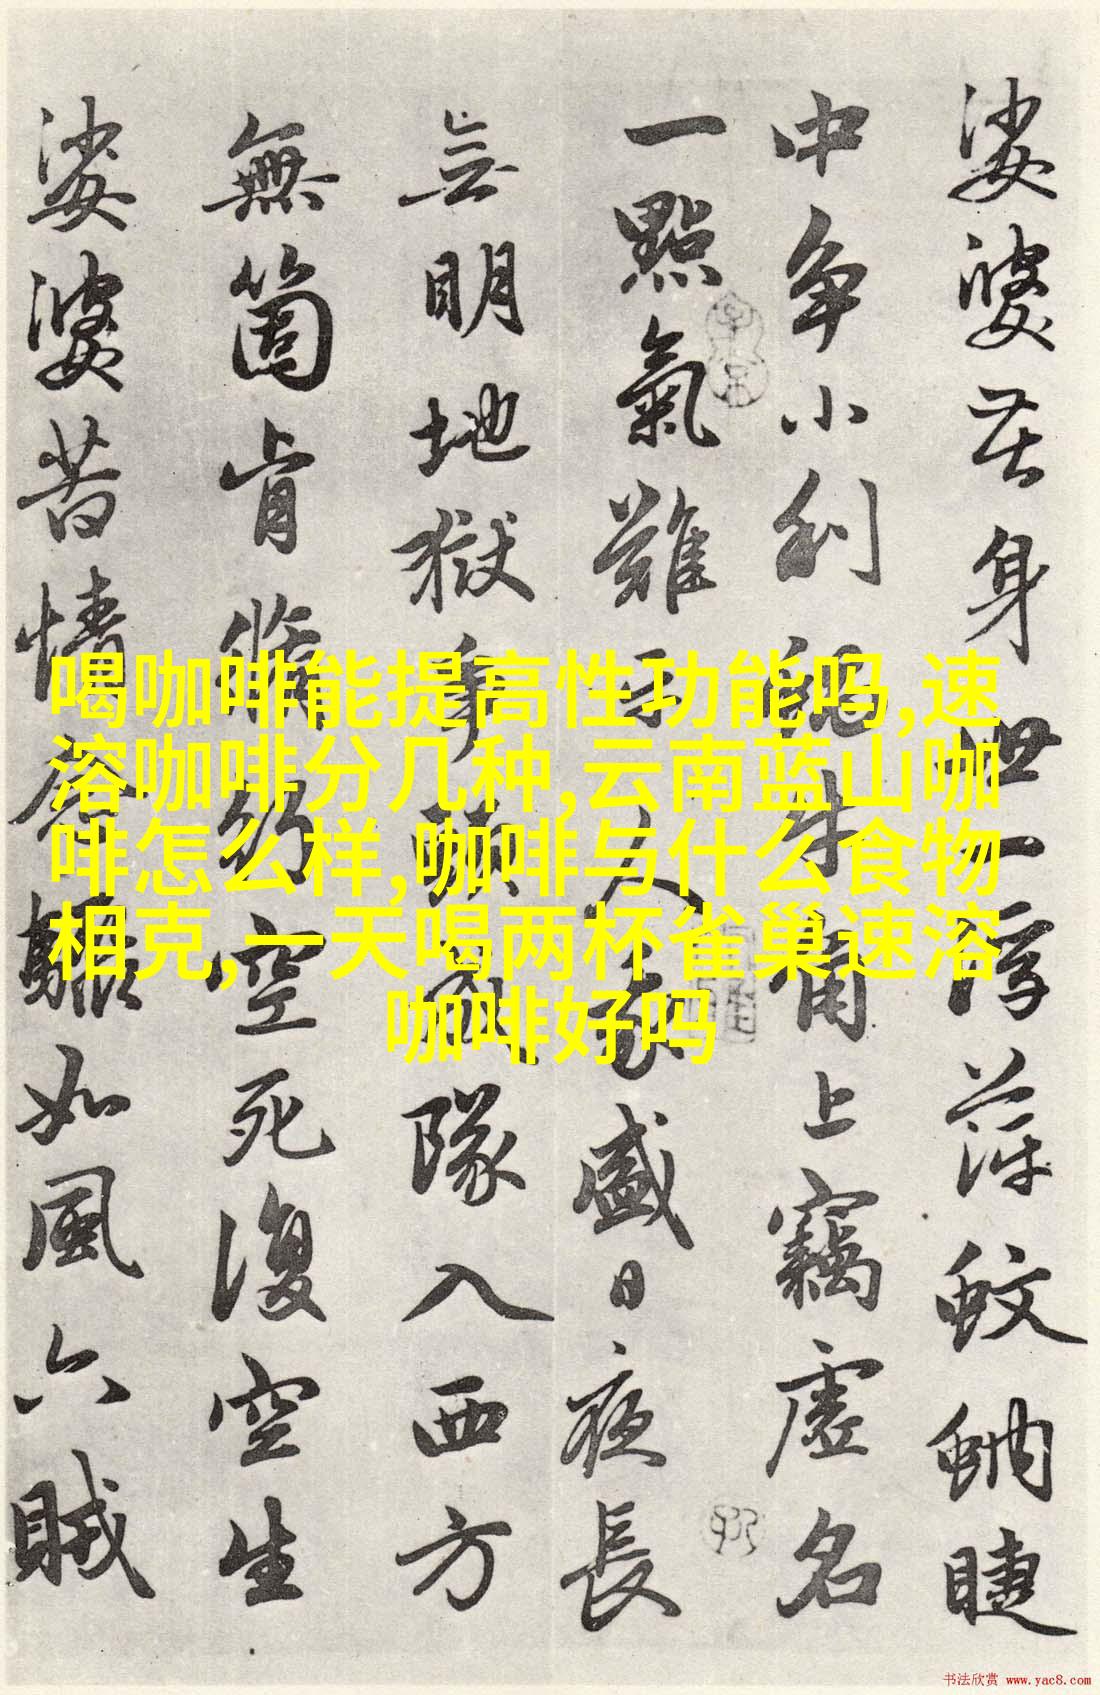 娑婆苦身世一浮萍蚊蚋睫
中争小利蜗牛角上竊虛名
一點氣難平人我盛日夜長
無明地獄爭頭成隊入西方
無箇肯脩行空死復空生
娑婆苦情念驟如風六賊
喝咖啡能提高性功能吗,速
溶咖啡分几种,云南蓝山咖
啡怎么样,咖啡与什么食物
相克,一天喝两杯雀巢速溶
咖啡好吗
书法欣赏 www.yac8.com